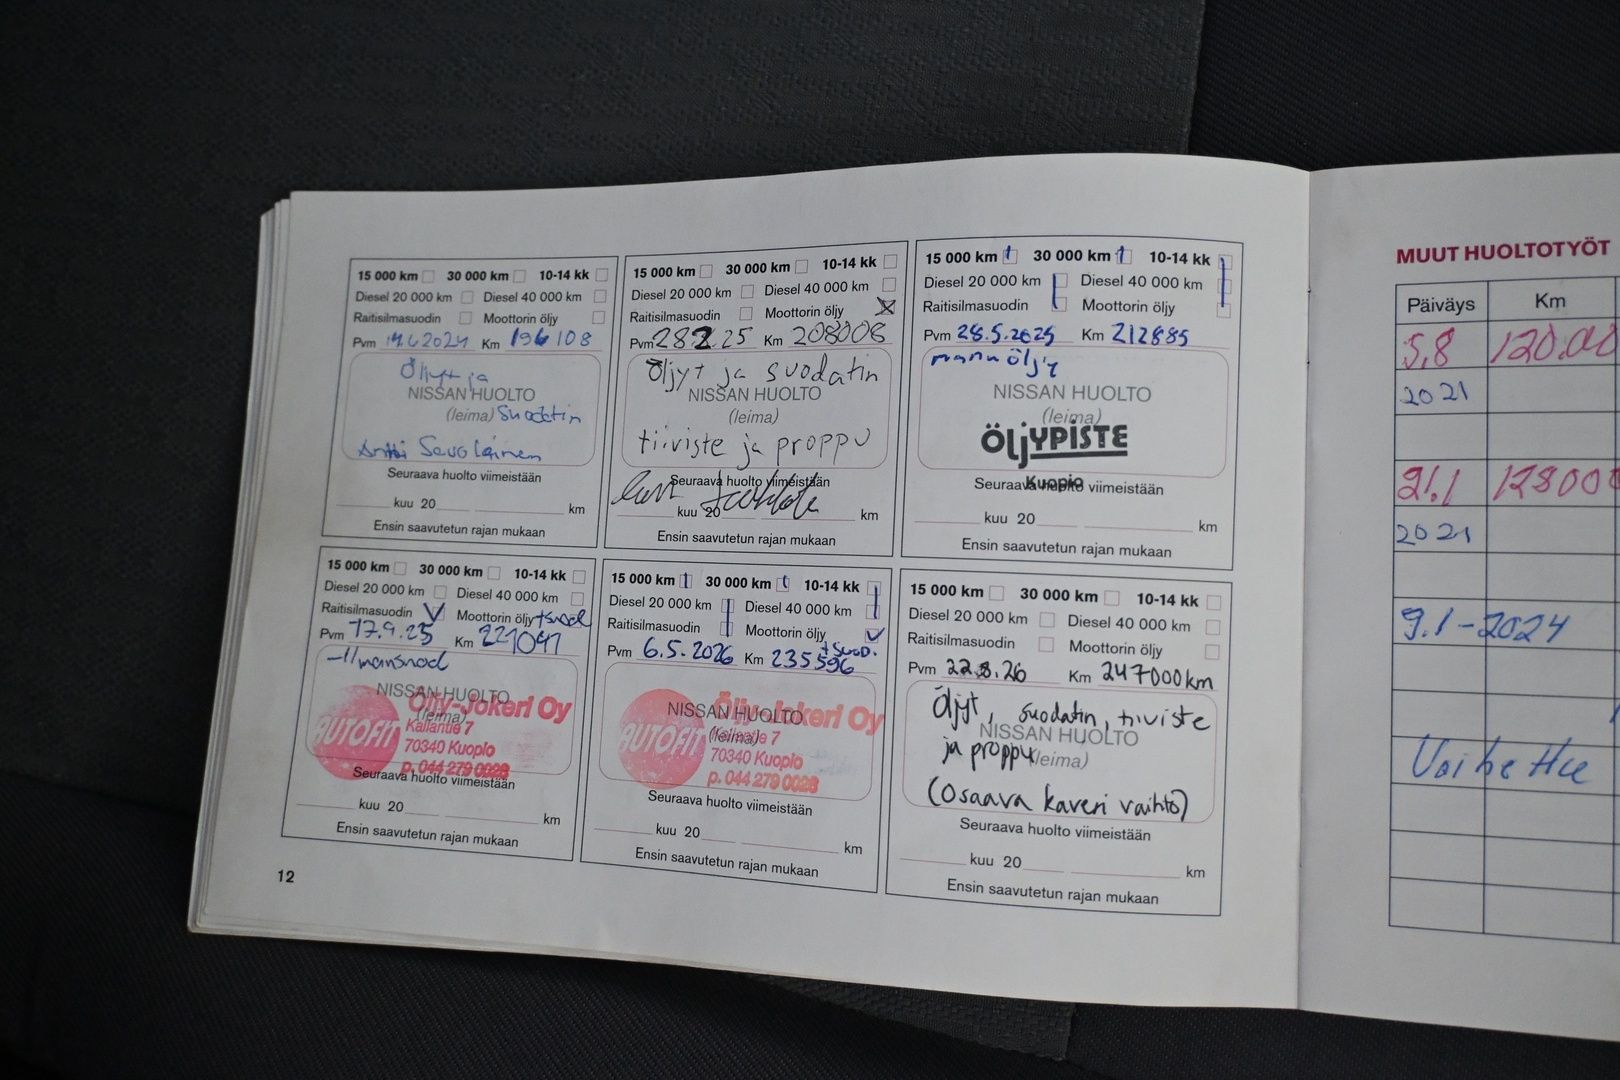 15 000 km 30 000 km 10-14 kk
Diesel 20 000 km Diesel 40 000 km
Raitisilmasuodin Moottorin öljy
Pvm 14.6 2024 Km 196108
Öljyt ja
NISSAN HUOLTO
(leima) Suodatin
Seuraava huolto viimeistään
kuu 20 km
Ensin saavutetun rajan mukaan
15 000 km 30 000 km 10-14 kk
Diesel 20 000 km Diesel 40 000 km
Raitisilmasuodin Moottorin öljy
Pvm 28.2.25 Km 208008
Öljyt ja suodatin
NISSAN HUOLTO
(leima)
tiiviste ja proppu
Seuraava huolto viimeistään
kuu 20 km
Ensin saavutetun rajan mukaan
15 000 km 30 000 km 10-14 kk
Diesel 20 000 km Diesel 40 000 km
Raitisilmasuodin Moottorin öljy
Pvm 28.5.2025 Km 212885
öljy
NISSAN HUOLTO
(leima)
ÖLJYPISTE
Kuopio
Seuraava huolto viimeistään
kuu 20 km
Ensin saavutetun rajan mukaan
15 000 km 30 000 km 10-14 kk
Diesel 20 000 km Diesel 40 000 km
Raitisilmasuodin Moottorin öljy +suod
Pvm 17.9.25 Km 221091
-Ilmansuod
NISSAN HUOLTO
(leima)
AUTOFIT
Öljy-Jokeri Oy
Kallantie 7
70340 Kuopio
p. 044 279 0028
Seuraava huolto viimeistään
kuu 20 km
Ensin saavutetun rajan mukaan
15 000 km 30 000 km 10-14 kk
Diesel 20 000 km Diesel 40 000 km
Raitisilmasuodin Moottorin öljy
+suod.
Pvm 6.5.2026 Km 235596
NISSAN HUOLTO
(leima)
AUTOFIT
Öljy-Jokeri Oy
Kallantie 7
70340 Kuopio
p. 044 279 0028
Seuraava huolto viimeistään
kuu 20 km
Ensin saavutetun rajan mukaan
15 000 km 30 000 km 10-14 kk
Diesel 20 000 km Diesel 40 000 km
Raitisilmasuodin Moottorin öljy
Pvm 22.8.26 Km 247000km
Öljyt, suodatin, tiiviste
NISSAN HUOLTO
ja proppu
(leima)
(Osaava kaveri vaihto)
Seuraava huolto viimeistään
kuu 20 km
Ensin saavutetun rajan mukaan
12
MUUT HUOLTOTYÖT
Päiväys Km
5.8 120.00
2021
21.1 128000
2021
9.1-2024
Vaihettu